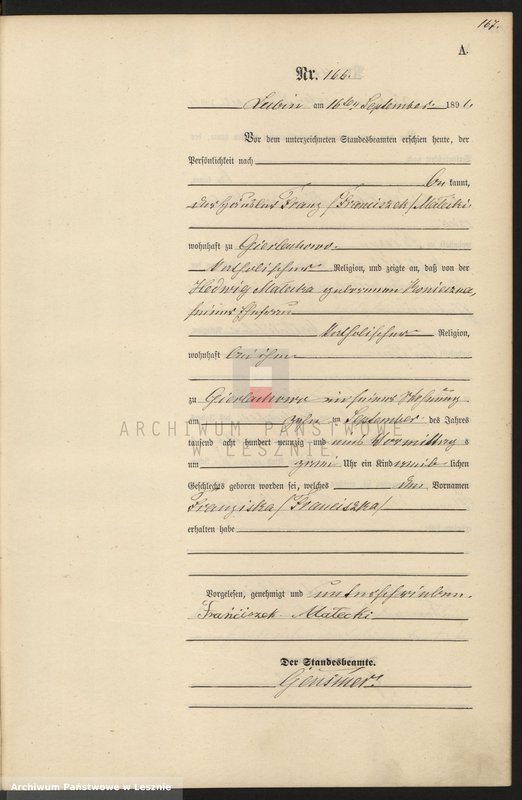 167.
A.
Nr. 166.
Lubin am 16ten September 1891.
Vor dem unterzeichneten Standesbeamten erschien heute, der
Persönlichkeit nach
bekannt,
der Häusler Franz /Franciszek/ Małecki
wohnhaft zu Gierlachowo
katholischer Religion, und zeigte an, daß von der
Hedwig Malecka geborenen Konieczna,
seiner Ehefrau
katholischer Religion,
wohnhaft bei ihm
zu Gierlachowo in seiner Wohnung
am zehn ten September des Jahres
tausend acht hundert neunzig und eins Vormittag s
um zwei Uhr ein Kind weib lichen
Geschlechts geboren worden sei, welches den Vornamen
Franziska /Franciszka/
erhalten habe
Vorgelesen, genehmigt und unterschrieben.
Franciszek Małecki
Der Standesbeamte.
ARCHIWUM PAŃSTWOWE
W LESZNIE
Archiwum Państwowe w Lesznie